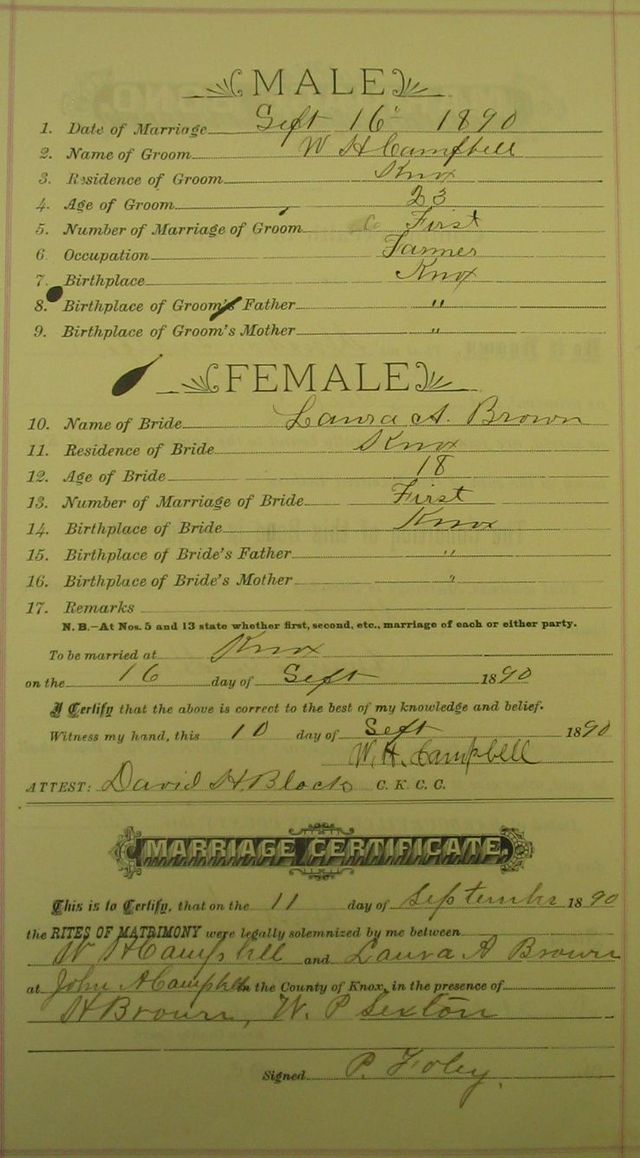 MALE
1. Date of Marriage Sept 16 1890
2. Name of Groom W H Campbell
3. Residence of Groom Knox
4. Age of Groom 23
5. Number of Marriage of Groom First
6 Occupation Farmer
7. Birthplace Knox
8. Birthplace of Groom's Father "
9. Birthplace of Groom's Mother "
FEMALE
10. Name of Bride Laura A. Brown
11. Residence of Bride Knox
12. Age of Bride 18
13. Number of Marriage of Bride First
14. Birthplace of Bride Knox
15. Birthplace of Bride's Father "
16. Birthplace of Bride's Mother "
17. Remarks
N. B.—At Nos. 5 and 13 state whether first, second, etc., marriage of each or either party.
To be married at Knox
on the 16 day of Sept 1890
I Certify that the above is correct to the best of my knowledge and belief.
Witness my hand, this 10 day of Sept 1890
W. H. Campbell
ATTEST: David H. Black C. K. C. C.
MARRIAGE CERTIFICATE.
This is to Certify, that on the 11 day of September 1890
the RITES OF MATRIMONY were legally solemnized by me between
W H Campbell and Laura A Brown
at John A Campbells in the County of Knox, in the presence of
H Brown, W. P Sexton
Signed P. Foley.